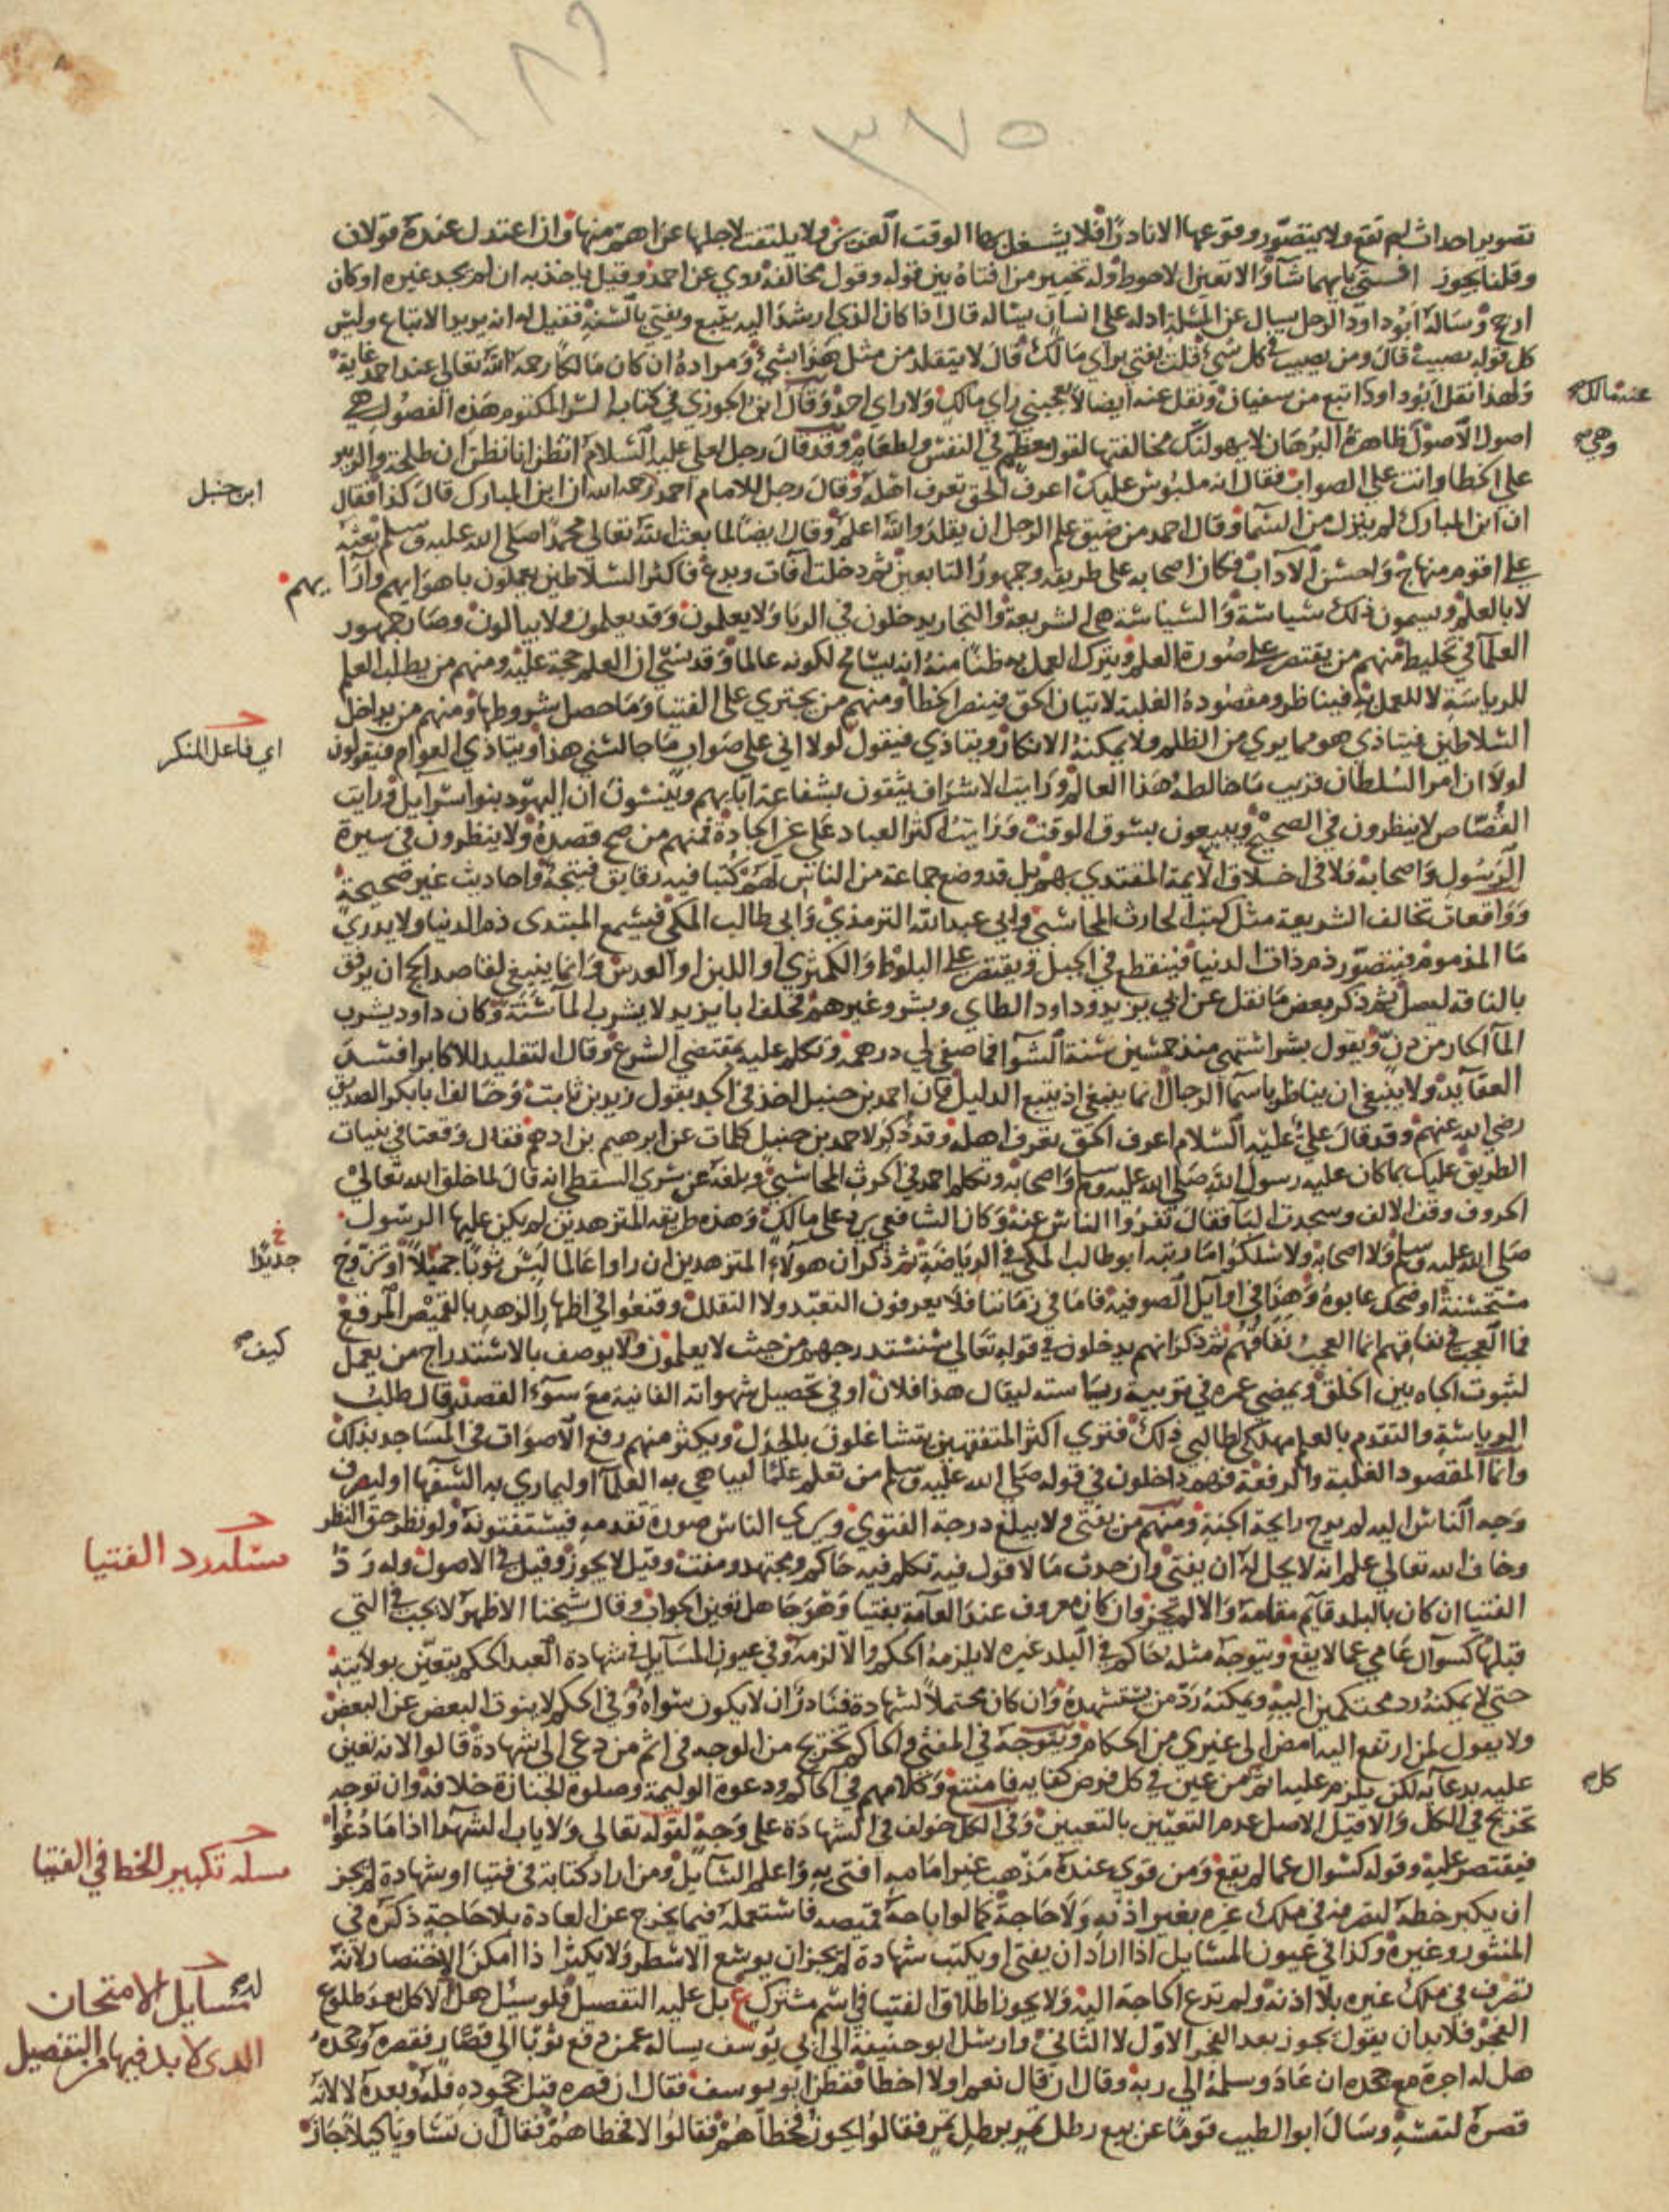 ١٨٩
٣٧٥
تصوير احداث لم تقع ولا يتصور وقوعها الا نادرا فلا يشغل بها الوقت العزيز ولا يلتفت لاجلها عن اهم منها وان اعتدل عنده قولان
وقلنا يجوز افتى بايهما شآ والا تعين الاحوط وله تخيير من افتاه بين قوله وقول مخالفه روي عن احمد وقيل ياخذ به ان لم يجد غيره او كان
ارجح وساله ابو داود الرجل يسال عن المسئلة ادله على انسان يساله قال اذا كان الذي ارشد اليه يتبع ويفتي بالسنة فقيل له انه يريد الاتباع وليس
كل قوله يصيب قال ومن يصيب في كل شي قلت يفتي براي مالك قال لا يتقلد من مثل هذا بشي ومراده ان كان مالكا رحمه الله تعالى عند احمد غاية
ولهذا نقل ابو داود اتبع من سفيان ونقل عنه ايضا لا يعجبني راي مالك ولا راي احد وقال ابن الجوزي في كتابه السر المكتوم هذه الفصول هي
عند مالك
اصول الاصول ظاهرة البرهان لا يهولنك مخالفتها لقول معظم في النفس ولطغام وقد قال رجل لعلي عليه السلام اتظن انا نظن ان طلحة والزبير
وهي
على الخطا وانت على الصواب فقال انه ملبوس عليك اعرف الحق تعرف اهله وقال رجل للامام احمد رحمه الله ان ابن المبارك قال كذا فقال
ابن حنبل
ان ابن المبارك لم ينزل من السما وقال احمد من ضيق علم الرجل ان يقلد والله اعلم وقال ايضا لما بعث الله تعالى محمدا صلى الله عليه وسلم بعثه
على اقوم منهاج واحسن الآداب فكان اصحابه على طريقه وجمهور التابعين ثم دخلت آفات وبدع فاكثر السلاطين يعملون باهوايهم وآرايهم
لا بالعلم ويسمون ذلك سياسة والسياسة هي الشريعة والتجار يدخلون في الربا ولا يعلمون وقد يعلمون ولا يبالون وصار جمهور
العلما في تخليط منهم من يقتصر على صورة العلم ويترك العمل به ظنا منه انه يسامح لكونه عالما وقد نسي ان العلم حجة عليه ومنهم من يطلب العلم
للرياسة لا للعمل به فيناظر ومقصوده الغلبة لا تبيان الحق فينصر الخطا ومنهم من يجتري على الفتيا وما حصل شروطها ومنهم من يداخل
السلاطين فيتاذى هو مما يرى من الظلم ولا يمكنه الانكار ويتاذى فيقول لولا اني على صواب ما جالسني هذا ويتاذى العوام فيقولون
اي فاعل المنكر
لولا ان امر السلطان قريب ما خالطه هذا العالم ورايت الاشراف يثقون بشفاعة آبايهم وينسون ان اليهود بنوا اسرآيل ورايت
القصاص لا ينظرون في الصحيح ويبيعون بسوق الوقت ورايت اكثر العباد على غير الجادة فمنهم من صح قصده ولا ينظرون في سيرة
الرسول واصحابه ولا في اخلاق الايمة المقتدى بهم بل قد وضع جماعة من الناس لهم كتبا فيه رقايق قبيحة واحاديث غير صحيحة
وواقعات تخالف الشريعة مثل كتب الحارث المحاسبي وابي عبد الله الترمذي وابي طالب المكي فيسمع المبتدى ذم الدنيا ولا يدري
ما المذموم فيتصور ذم ذات الدنيا فينقطع في الجبل ويقتصر على البلوط والكمثرى او اللبن او العدس وانما ينبغي لقاصد الحج ان يرفق
بالناقة ليصل ثم ذكر بعض ما نقل عن ابي يزيد وداود الطاي وبشر وغيرهم فحلف ابا يزيد لا يشرب المآ سنة وكان داود يشرب
المآ الحار من دن ويقول بشر اشتهي منذ خمسين سنة الشوآ فما صفى لي درهمه وتكلم عليه بمقتضى الشرع وقال التقليد للاكابر افسد
العقآيد ولا ينبغي ان يناظر باسما الرجال انما ينبغي ان يتبع الدليل فان احمد بن حنبل اخذ في الجد بقول زيد بن ثابت وخالف ابا بكر الصديق
رضي الله عنهم وقد قال علي عليه السلام اعرف الحق تعرف اهله وقد ذكر لاحمد بن حنبل كلمات عن ابرهيم بن ادهم فقال وقعنا في بنيات
الطريق عليك بما كان عليه رسول الله صلى الله عليه وسلم واصحابه وتكلم احمد في الحرث المحاسبي وبلغه عن سري السقطي انه قال لما خلق الله تعالى
الحروف وقف الالف وسجدت البا فقال نفروا الناس عنه وكان الشافعي يرد على مالك وهذه طريقة المتزهدين لم يكن عليها الرسول
صلى الله عليه وسلم ولا اصحابه ولا سلكوا ما رتبه ابو طالب المكي في الرياضة ثم ذكر ان هولاء المتزهدين ان راوا عالما لبس ثوبا جميلا او تزوج
خ جديدا
مستحسنة او ضحك عابوه وهذا في اوآيل الصوفية فاما في زماننا فلا يعرفون التعبد ولا التقلل وقنعوا في اظهار الزهد بالقميص المرقع
فما العجب في نفاقهم انما العجب نفاقهم ثم ذكر انهم يدخلون في قوله تعالى سنستدرجهم من حيث لا يعلمون ولا يوصف بالاستدراج من يعمل
كيف
لثبوت الجاه بين الخلق ويمضي عمره في تربية رياسته ليقال هذا فلان او في تحصيل شهواته الفانية مع سوء القصد وقال طلب
الرياسة والتقدم بالعلم مهلكة لطالبي ذلك فترى اكثر المتفقهين يتشاغلون بالجدل ويكثر منهم رفع الاصوات في المساجد بذلك
وانما المقصود الغلبة والرفعة فهم داخلون في قوله صلى الله عليه وسلم من تعلم علما ليباهي به العلمآ او ليماري به السفها او ليصرف
وجه الناس اليه لم يرح رايحة الجنة ومنهم من يفتي ولا يبلغ درجة الفتوى ويري الناس صورة تقدمه فيستفتونه ولو نظر حق النظر
وخاف الله تعالى علم انه لا يحل له ان يفتي وان حدث ما لا قول فيه تكلم فيه حاكم ومجتهد ومفت وقيل لا يجوز وقيل في الاصول وله رد
مسئلة رد الفتيا
الفتيا ان كان بالبلد قآيم مقامه والا لم يجز وان كان معروف عند العامة بفتيا وهو جاهل تعين الجواب وقال شيخنا الاظهر لا يجب في التي
قبلها كسوآل عامي عما لا يقع ويتوجه مثله حاكم في البلد غيره لا يلزمه الحكم والا لزمه وفي عيون المسآيل في شهادة العبد الحكم يتعين بولايته
حتى لا يمكنه رد محتكمين اليه ويمكنه رد من يستشهده وان كان محتملا لشهادة فنادر ان لا يكون سواه وفي الحكم لا ينوب البعض عن البعض
ولا يقول لمن ارتفع اليه امض الى غيري من الحكام ويتوجه في المفتي والحاكم تخريج من الوجه في اثم من دعي الى شهادة قالوا لانه تعين
عليه بدعآيه لكن يلزم عليه اثم من عين في كل فرض كفاية فامتنع وكلامهم في الحاكم ودعوة الوليمة وصلوة الجنازة خلافه وان توجه
كل
تخريج في الكل والا قيل الاصل عدم التعيين بالتعيين وفي الكل خولف في الشهادة على وجه لقوله تعالى ولا ياب الشهدآ اذا ما دعوا
فيقتصر عليه وقوله كسوال عما لم يقع ومن قوي عنده مذهب غير امامه افتى به واعلم السآيل ومن اراد كتابة في فتيا او شهادة لم يجز
مسلة تكبير الخط في الفتيا
ان يكبر خطه لتصرفه في ملك غيره بغير اذنه ولا حاجة كما لو اباحه قميصه فاستعمله فيما يخرج عن العادة بلا حاجة ذكره في
المنثور وغيره وكذا في عيون المسايل اذا اراد ان يفتي او يكتب شهادة لم يجز ان يوسع الاسطر ولا يكثر اذا امكن الاختصار لانه
تصرف في ملك غيره بلا اذنه ولم تدع الحاجة اليه ولا يجوز اطلاق الفتيا في اسم مشترك ع بل عليه التفصيل فلو سئل هل له الاكل بعد طلوع
مسآيل الامتحان
الفجر فلا بد ان يقول يجوز بعد الفجر الاول لا الثاني وارسل ابو حنيفة الى ابي يوسف يساله عمن دفع ثوبا الى قصار فقصره وجحده
الذي لا بد فيها من التفصيل
هل له اجرة مع جحده ان عاد وسلمه الى ربه وقال ان قال نعم او لا اخطا ففطن ابو يوسف فقال ان قصره قبل جحوده فله وبعده لا لانه
قصره لنفسه وسال ابو الطيب قوما عن بيع رطل تمر برطل تمر فقالوا يجوز فخطاهم فقالوا لا فخطاهم فقال ان تساويا كيلا جاز